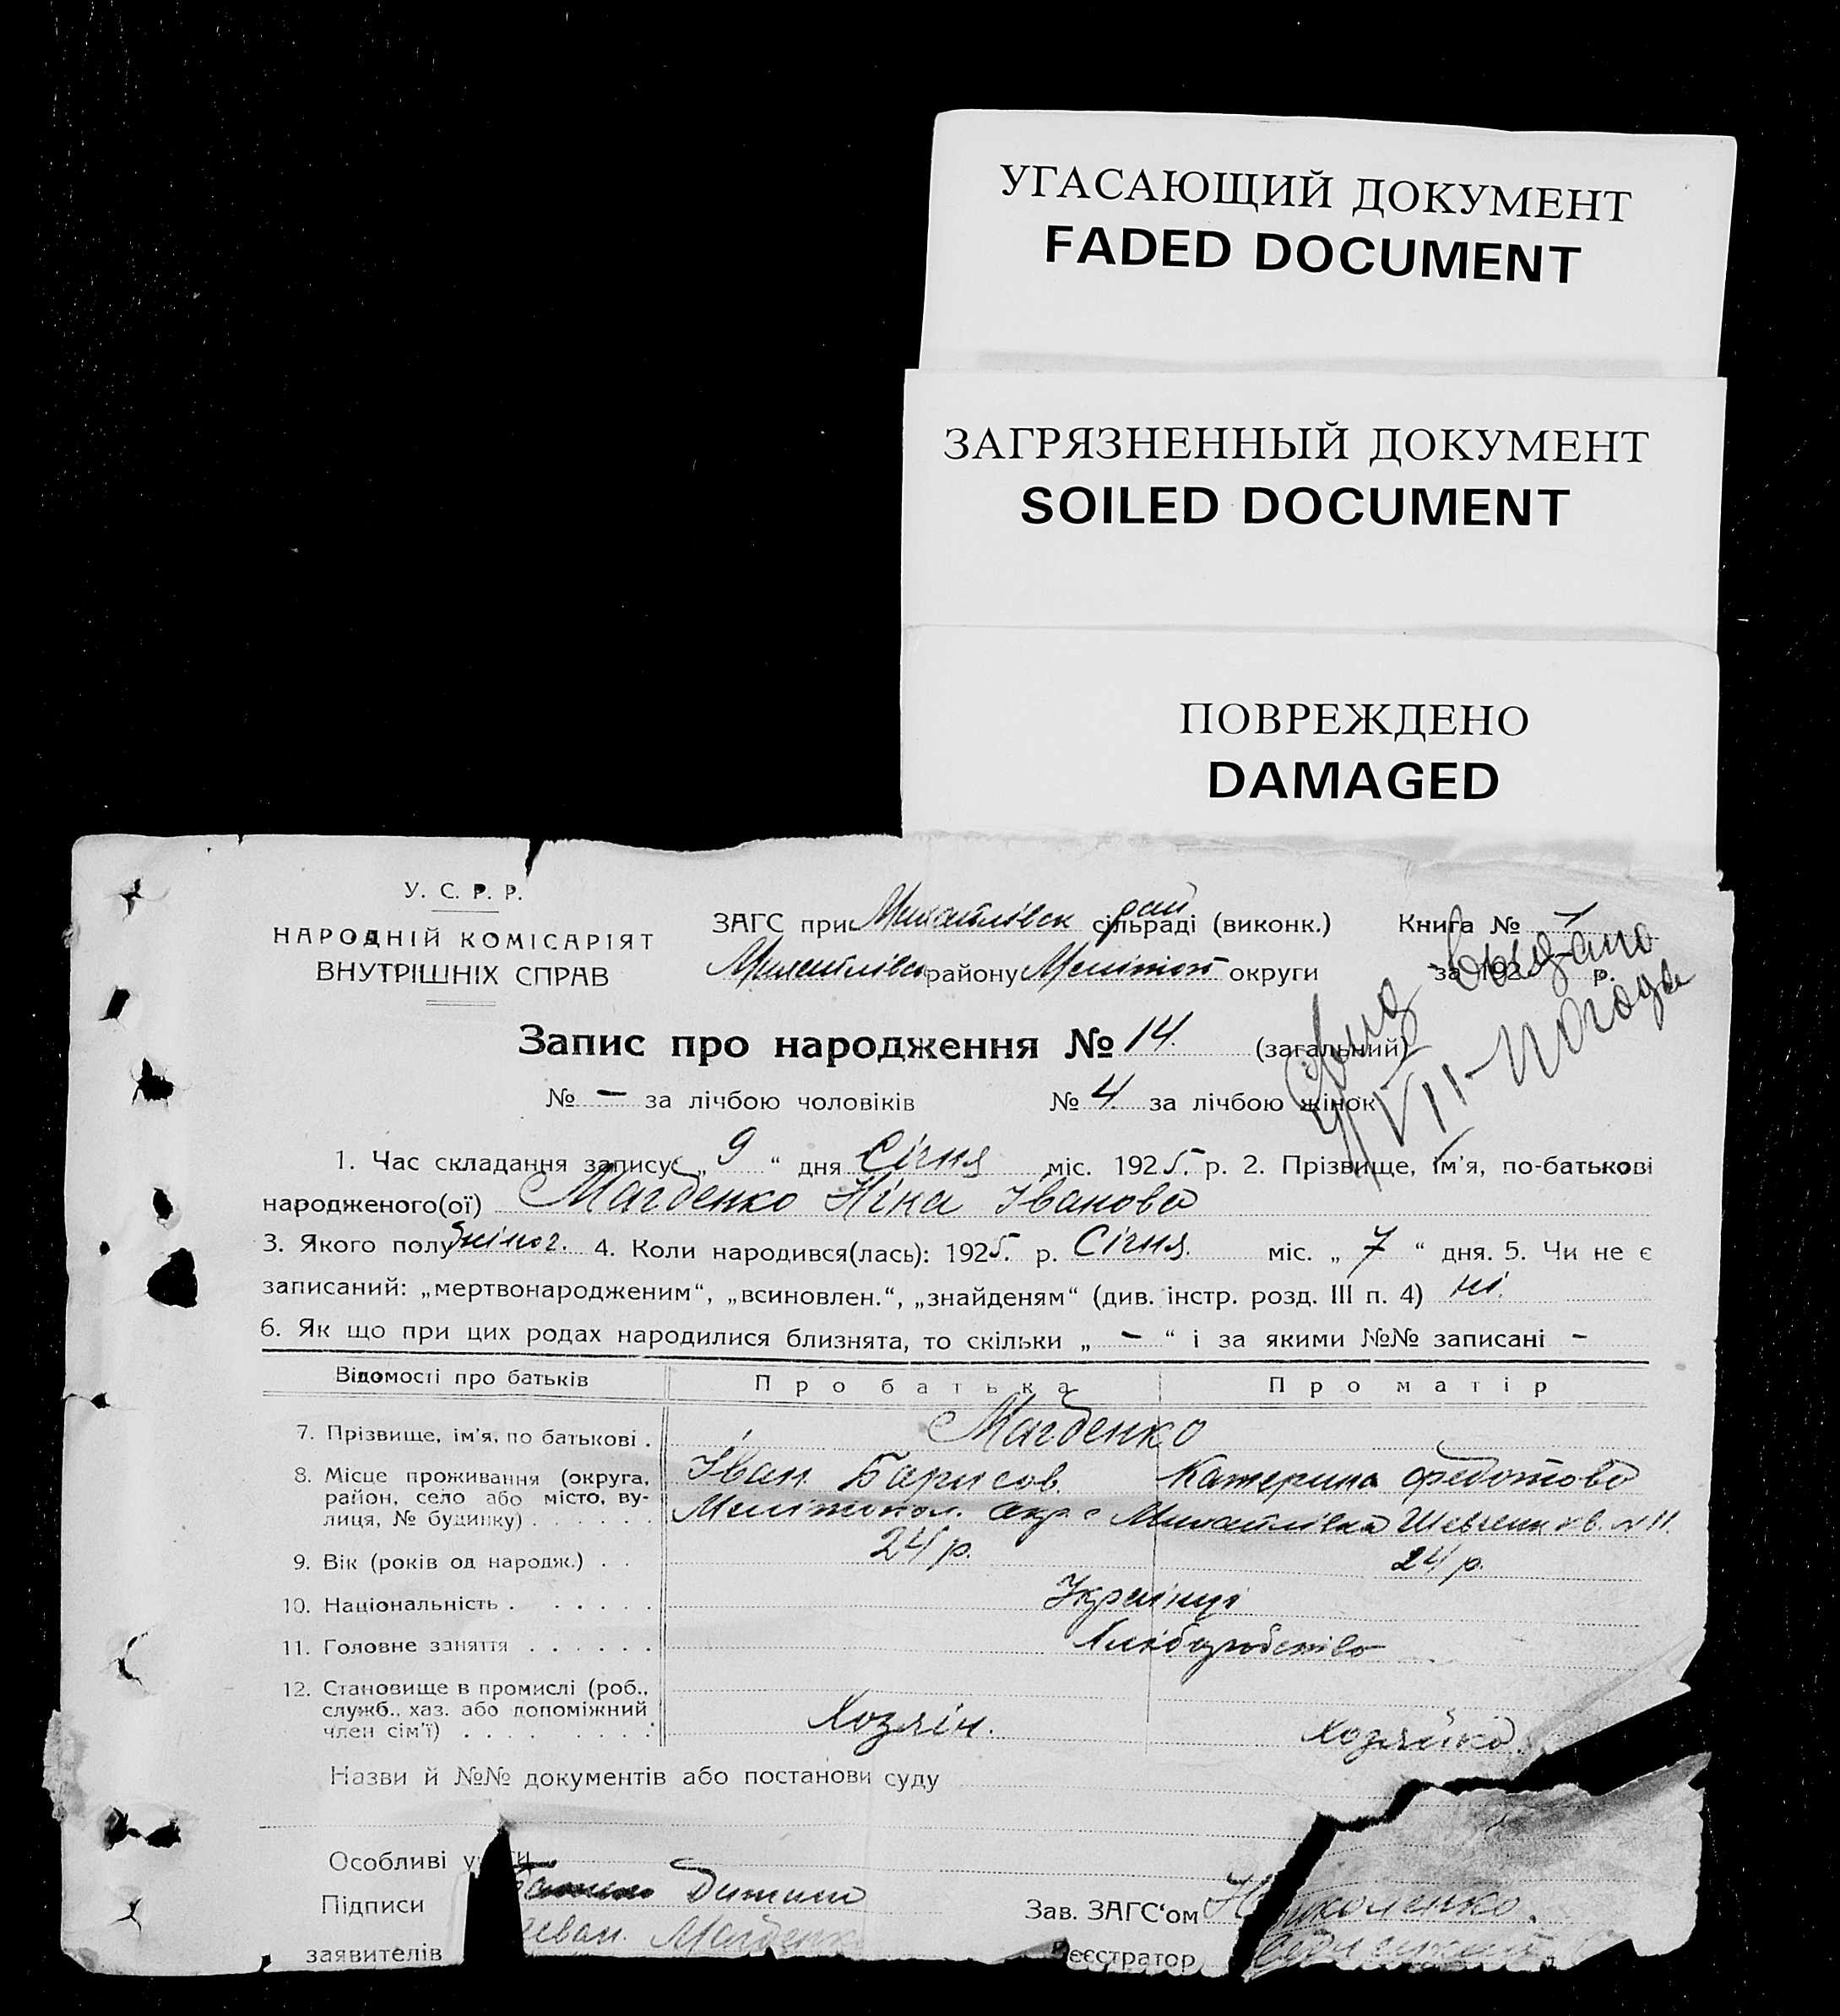 УГАСАЮЩИЙ ДОКУМЕНТ
FADED DOCUMENT
ЗАГРЯЗНЕННЫЙ ДОКУМЕНТ
SOILED DOCUMENT
ПОВРЕЖДЕНО
DAMAGED
У. С. Р. Р.
НАРОДНІЙ КОМІСАРІЯТ
ВНУТРІШНІХ СПРАВ
ЗАГС при Михайлівск рай сільраді (виконк.) Книга № 1
Михайлівск району Мелітоп округи за 1925 р.
Видано
VII-
Запис про народження № 14. (загальний)
№ — за лічбою чоловіків № 4 за лічбою жінок
1. Час складання запису „ 9 “ дня Січня міс. 1925. р. 2. Прізвище, ім'я, по-батькові
народженого(ої) Магденко Ніна Іванова
3. Якого полу жіноч. 4. Коли народився(лась): 1925. р. Січня. міс. „ 7 “ дня. 5. Чи не є
записаний: „мертвонародженим“, „всиновлен.“, „знайденям“ (див. інстр. розд. III п. 4) ні.
6. Як що при цих родах народилися близнята, то скільки „ — “ і за якими №№ записані —
Відомості про батьків Про батька Про матір
7. Прізвище, ім'я, по батькові . Магденко
Іван Барисов Катерина Федотова
8. Місце проживання (округа,
район, село або місто, ву-
лиця, № будинку) . . . . . . Мелітопол. окр с Михайлівка Шевченк кв. № 11.
9. Вік (років од народж.) . . 24 р. 24 р.
10. Національність . . . . . . Українці
11. Головне заняття . . . . . . Хліборобство
12. Становище в промислі (роб.,
служб., хаз. або допоміжний
член сім'ї) . . . . . . . . Хозяїн. Хозяйка.
Назви й №№ документів або постанови суду
Особливі
Підписи Дитини Зав. ЗАГС'ом Николенко.
заявителів Магденк еєстратор